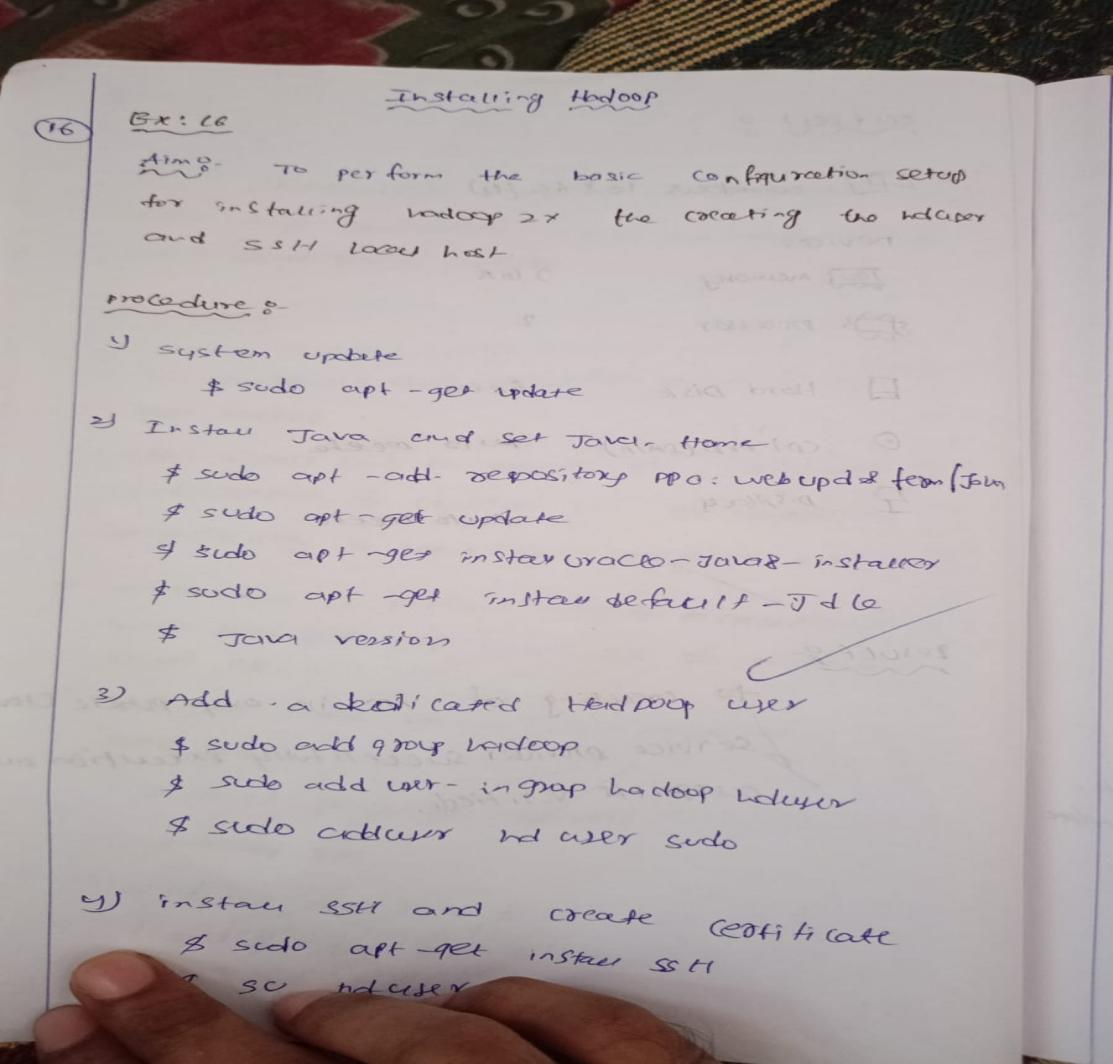 Installing Hadoop
16
Ex: 16
Aim:- To perform the basic configuration setup
for installing hadoop 2x the creating the hduser
and SSH local host
procedure :-
1) system update
$ sudo apt-get update
2) Install Java and set Java-Home
$ sudo apt-add-repository ppa: webupd8 team/
$ sudo apt-get update
$ sudo apt-get install oracle-Java8-installer
$ sudo apt-get install default-Jdk
$ Java version
3) Add a dedicated Hadoop user
$ sudo add group hadoop
$ sudo add user - ingroup hadoop hduser
$ sudo adduser hd user sudo
4) install SSH and create certificate
$ sudo apt-get install SSH
su hduser